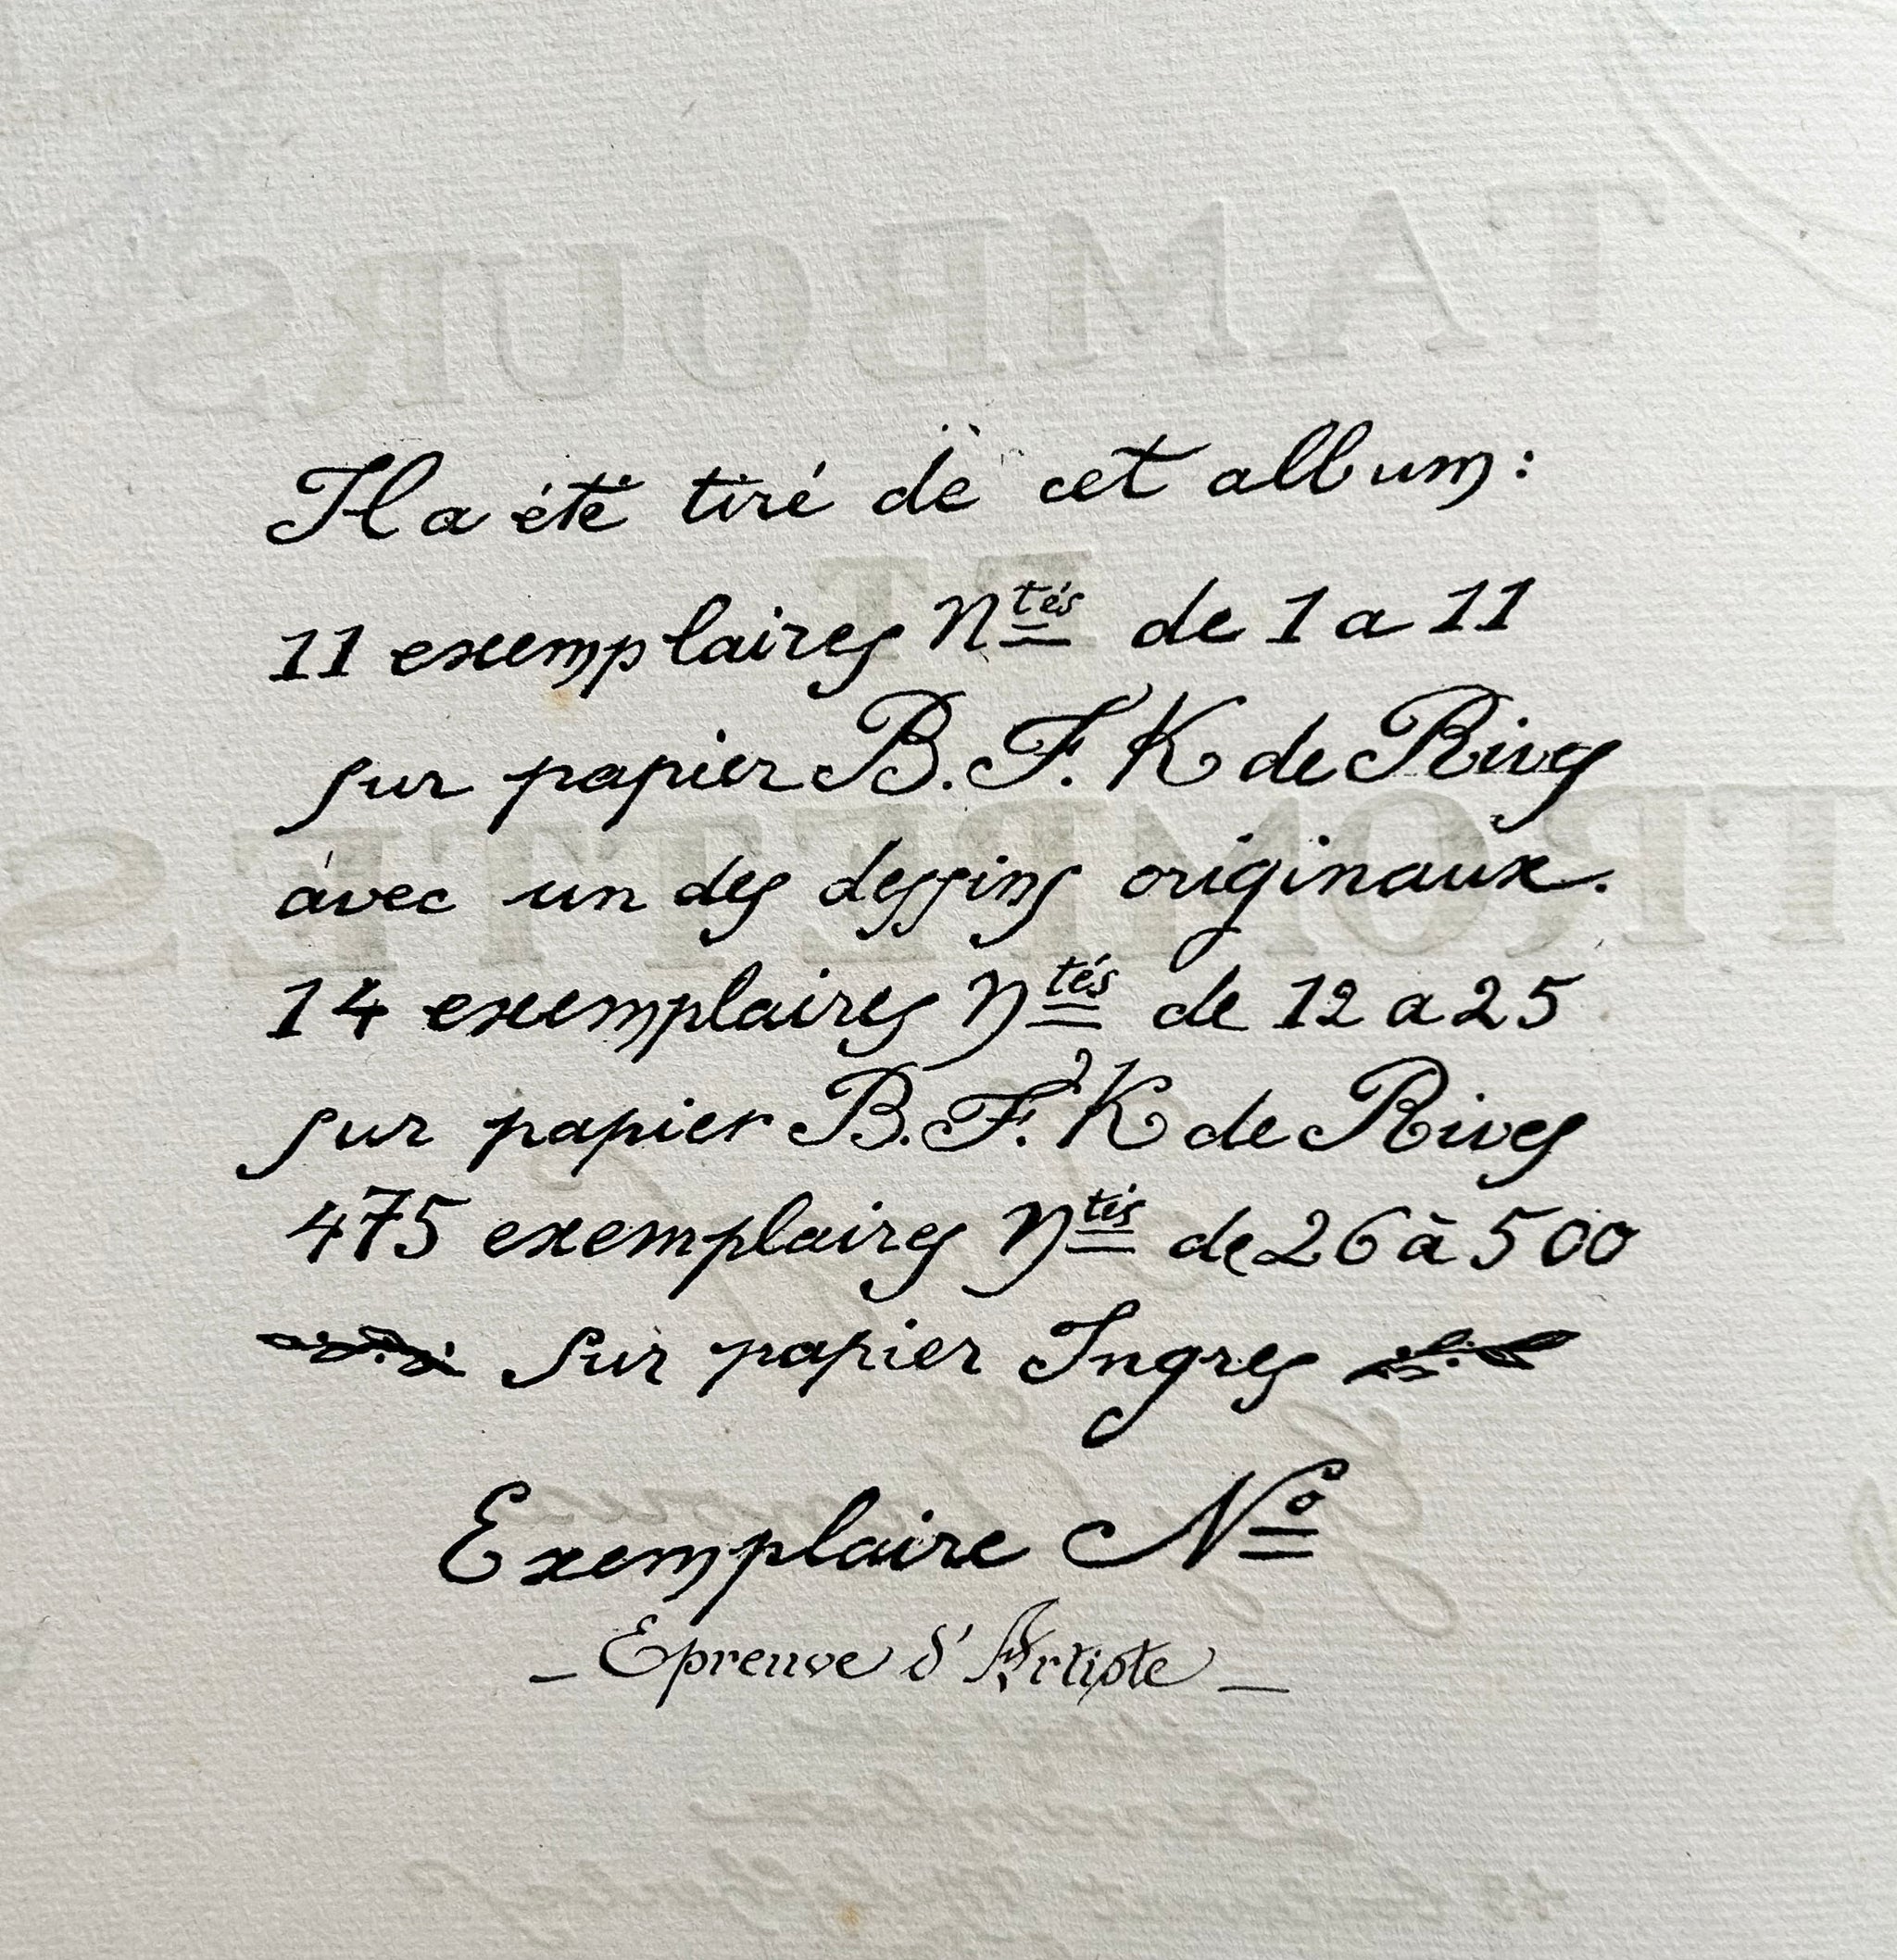 TAMBOURS
Il a été tiré de cet album:
ET
11 exemplaires Ntés de 1 a 11
sur papier B. F. K de Rives
TROMPETTES
avec un des dessins originaux.
14 exemplaires Ntés de 12 a 25
sur papier B. F. K de Rives
475 exemplaires Ntés de 26 à 500
sur papier Ingres
Exemplaire No
- Epreuve d'Artiste -